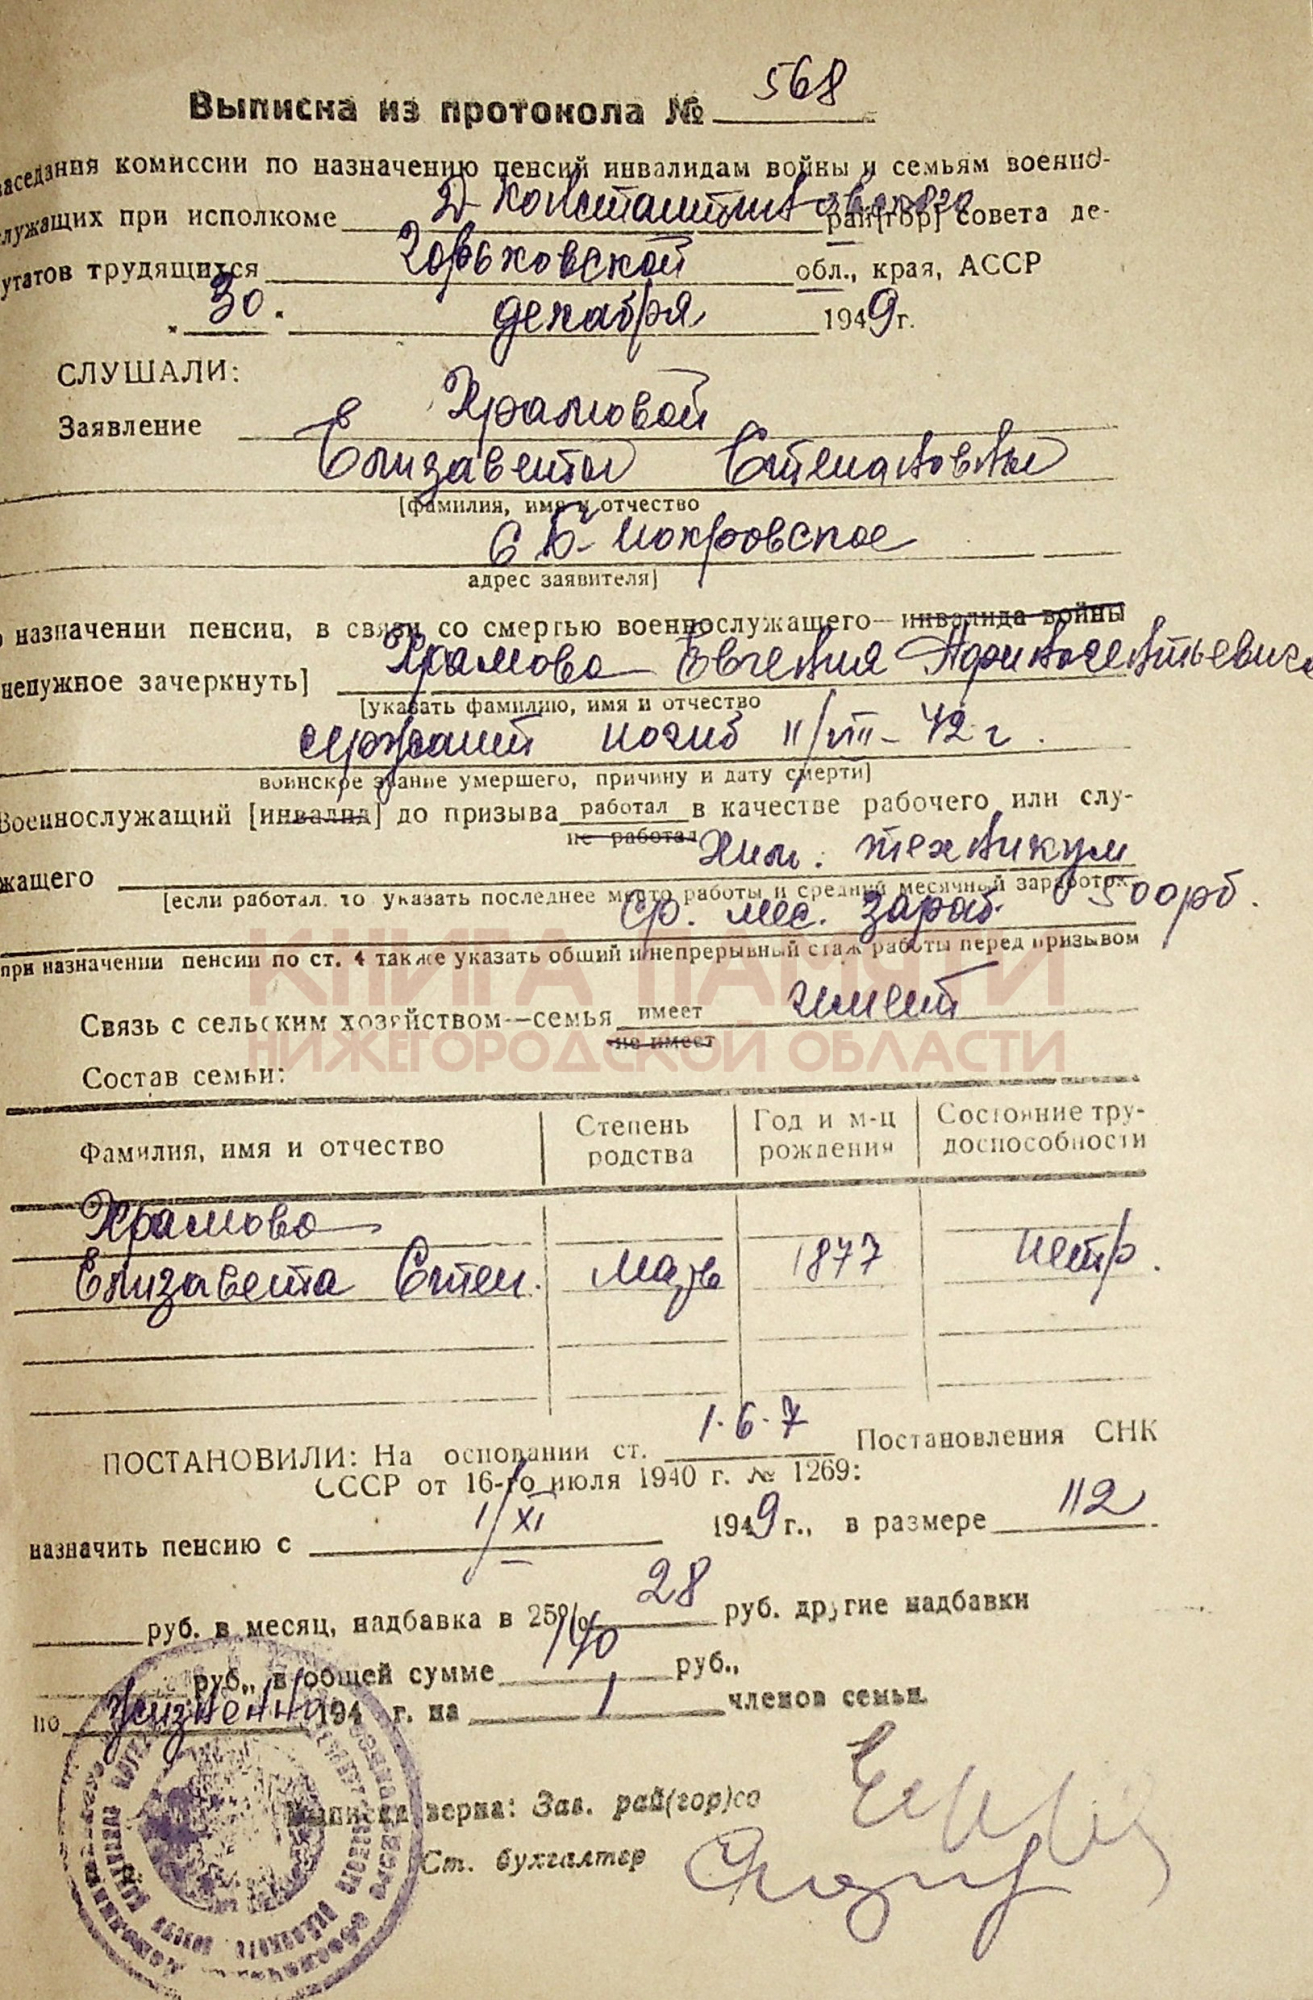 Выписка из протокола № 568
заседания комиссии по назначению пенсий инвалидам войны и семьям военно-
служащих при исполкоме Д-Константиновского рай[гор] совета де-
путатов трудящихся Горьковской обл., края, АССР
" 30 " декабря 1949 г.
СЛУШАЛИ:
Заявление Храмовой
Елизаветы Степановны
[фамилия, имя и отчество
с Б-Мокровское
адрес заявителя]
о назначении пенсии, в связи со смертью военнослужащего—инвалида войны
ненужное зачеркнуть] Храмова Евгения
[указать фамилию, имя и отчество
сержант погиб 11/VIII-42 г.
воинское звание умершего, причину и дату смерти]
Военнослужащий [инвалид] до призыва работал в качестве рабочего или слу-
не работал
жащего Хим. техникум
[если работал, то указать последнее место работы и средний месячный заработок
ср. мес. зараб. 500 рб.
при назначении пенсии по ст. 4 также указать общий и непрерывный стаж работы перед призывом
КНИГА ПАМЯТИ
НИЖЕГОРОДСКОЙ ОБЛАСТИ
Связь с сельским хозяйством—семья имеет имеет
не имеет
Состав семьи:
Фамилия, имя и отчество Степень родства Год и м-ц рождения Состояние тру- доспособности
Храмова
Елизавета Степ. Мать 1877 нетр.
ПОСТАНОВИЛИ: На основании ст. 1-6-7 Постановления СНК
СССР от 16-го июля 1940 г. № 1269:
назначить пенсию с 1/XI 1949 г., в размере 112
руб. в месяц, надбавка в 25% 28 руб. другие надбавки
руб., в общей сумме 140 руб.,
по Жизненно 194 г. на 1 членов семьи.
Выписка верна: Зав. рай(гор)со
Ст. бухгалтер